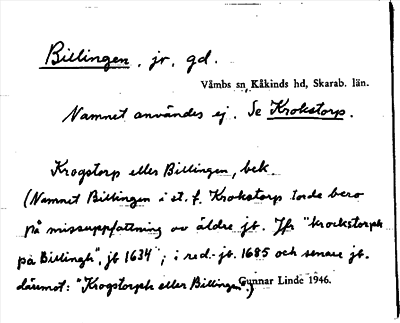 Billingen, jr, gd.
Våmbs sn, Kåkinds hd, Skarab. län.
Namnet användes ej. Se Krokstorp.
Krogstorp eller Billingen, bek.
(Namnet Billingen i st. f. Krokstorp torde bero
på missuppfattning av äldre jb. Jfr "krockstorph
på Billingh", jb 1634; i red. jb. 1685 och senare jb.
däremot: "Krogstorph eller Billingen".)
Gunnar Linde 1946.